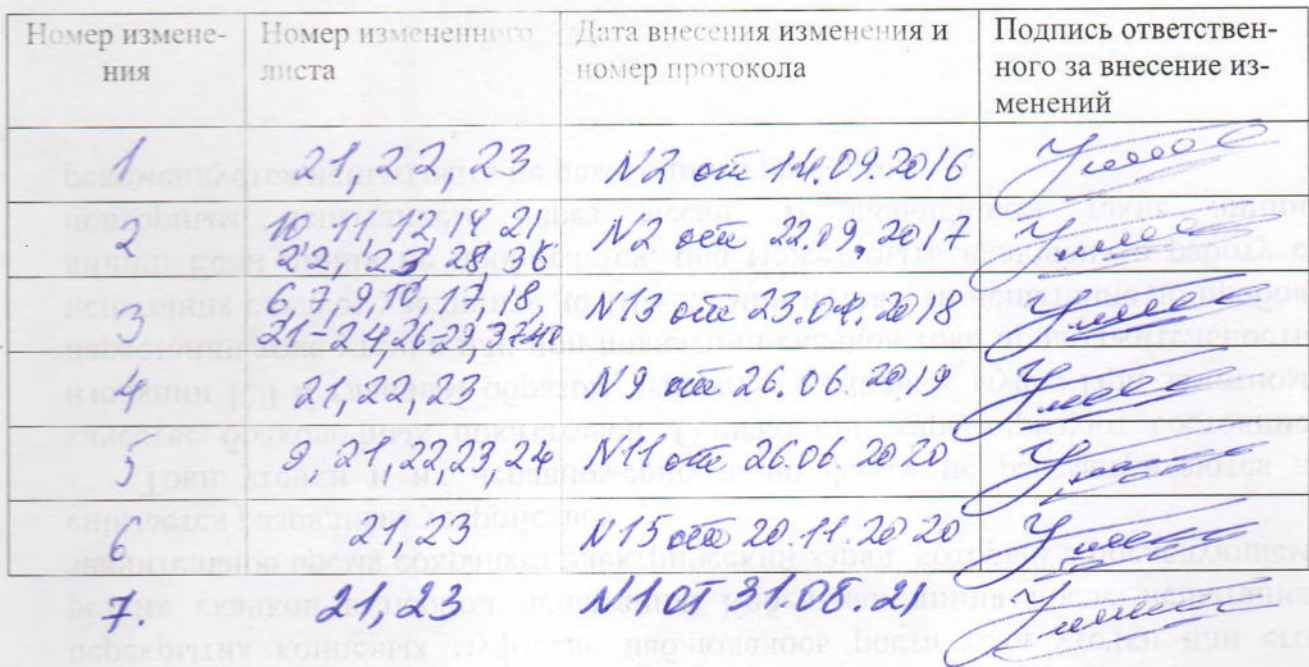 Номер измене-
ния
Номер измененного
листа
Дата внесения изменения и
номер протокола
Подпись ответствен-
ного за внесение из-
менений
1
21, 22, 23
N2 от 14.09.2016
2
10, 11, 12, 14, 21
22, 23, 28, 36
N2 от 22.09.2017
3
6, 7, 9, 10, 17, 18,
21-24, 26-29, 37-40
N13 от
4
21, 22, 23
N9 от 26.06.2019
5
9, 21, 22, 23, 24
N11 от 26.06.2020
6
21, 23
N15 от 20.11.2020
7.
21, 23
N1 от 31.08.21